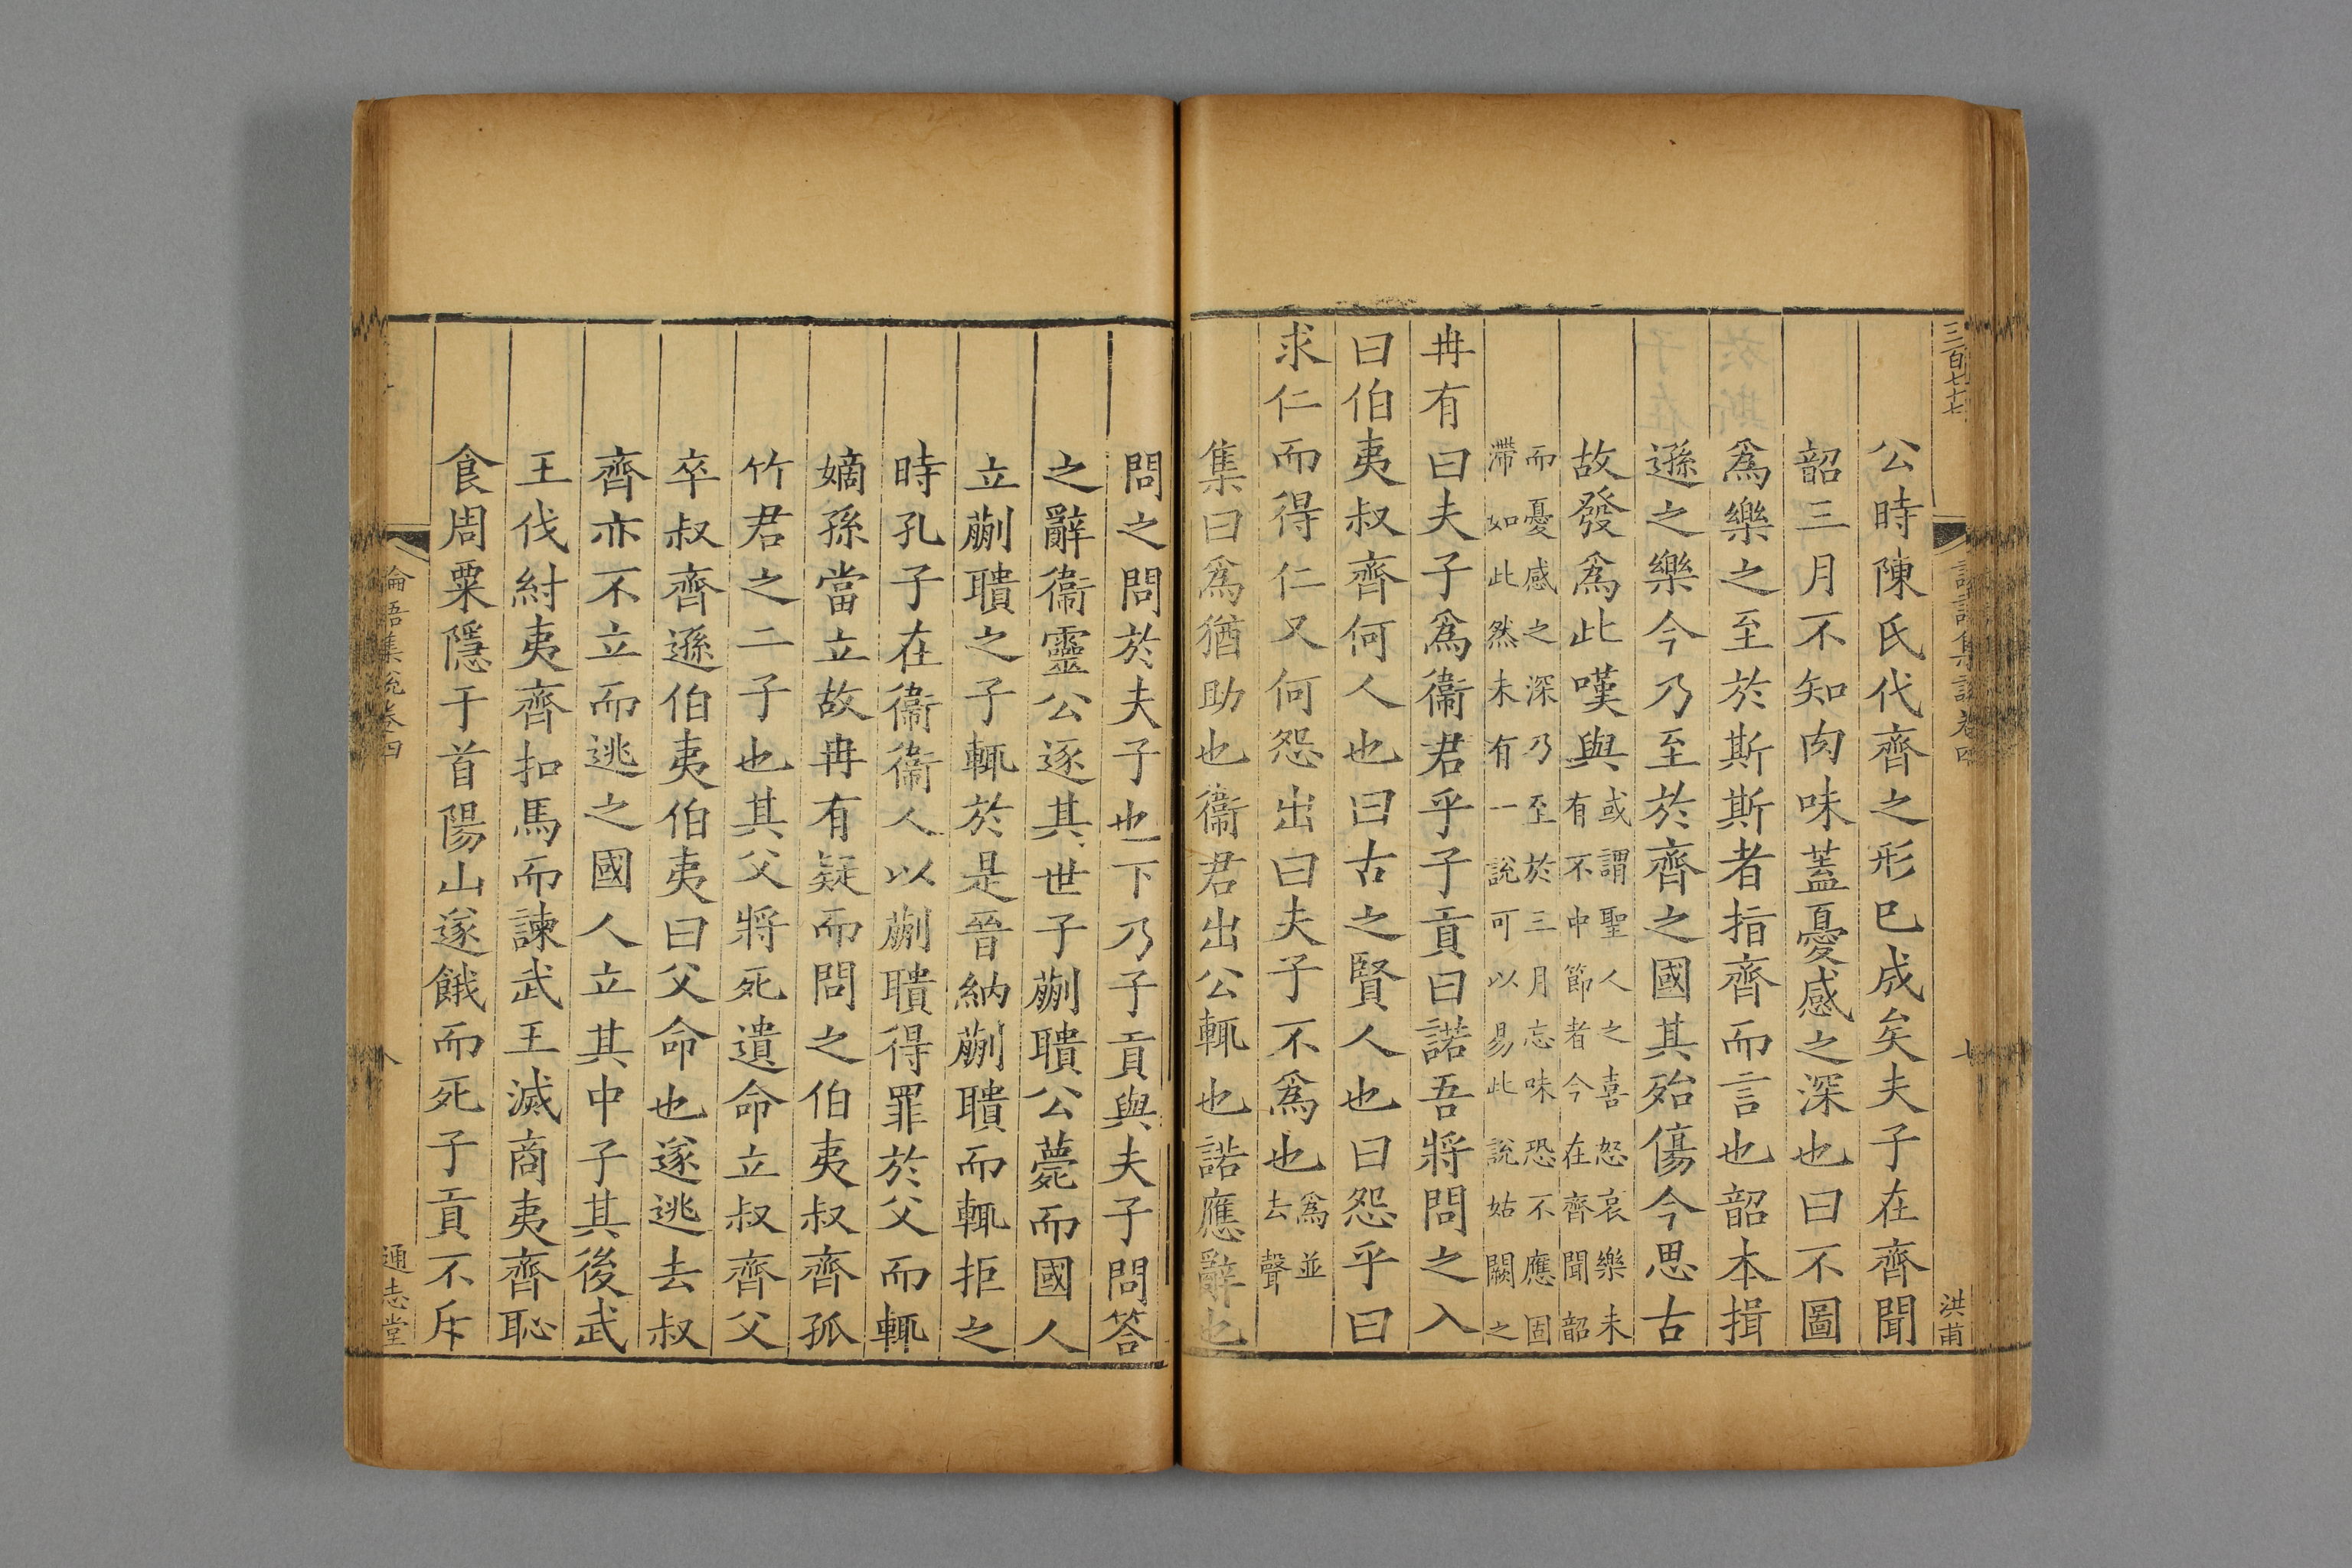 三百七十七
洪甫
公時陳氏代齊之形已成矣夫子在齊聞
韶三月不知肉味蓋憂感之深也曰不圖
爲樂之至於斯斯者指齊而言也韶本揖
遜之樂今乃至於齊之國其殆傷今思古
故發爲此嘆與或謂聖人之喜怒哀樂未
有不中節者今在齊聞韶
而憂感之深乃至於三月忘味恐不應固
滯如此然未有一說可以易此說姑闕之
冉有曰夫子爲衞君乎子貢曰諾吾將問之入
曰伯夷叔齊何人也曰古之賢人也曰怨乎曰
求仁而得仁又何怨出曰夫子不爲也爲並
去聲
集曰爲猶助也衞君出公輒也諾應辭也
問之問於夫子也下乃子貢與夫子問答
之辭衞靈公逐其世子蒯聵公薨而國人
立蒯聵之子輒於是晉納蒯聵而輒拒之
時孔子在衞衞人以蒯聵得罪於父而輒
嫡孫當立故冉有疑而問之伯夷叔齊孤
竹君之二子也其父將死遺命立叔齊父
卒叔齊遜伯夷伯夷曰父命也遂逃去叔
齊亦不立而逃之國人立其中子其後武
王伐紂夷齊扣馬而諫武王滅商夷齊恥
食周粟隱于首陽山遂餓而死子貢不斥
論語集說卷四
八
通志堂